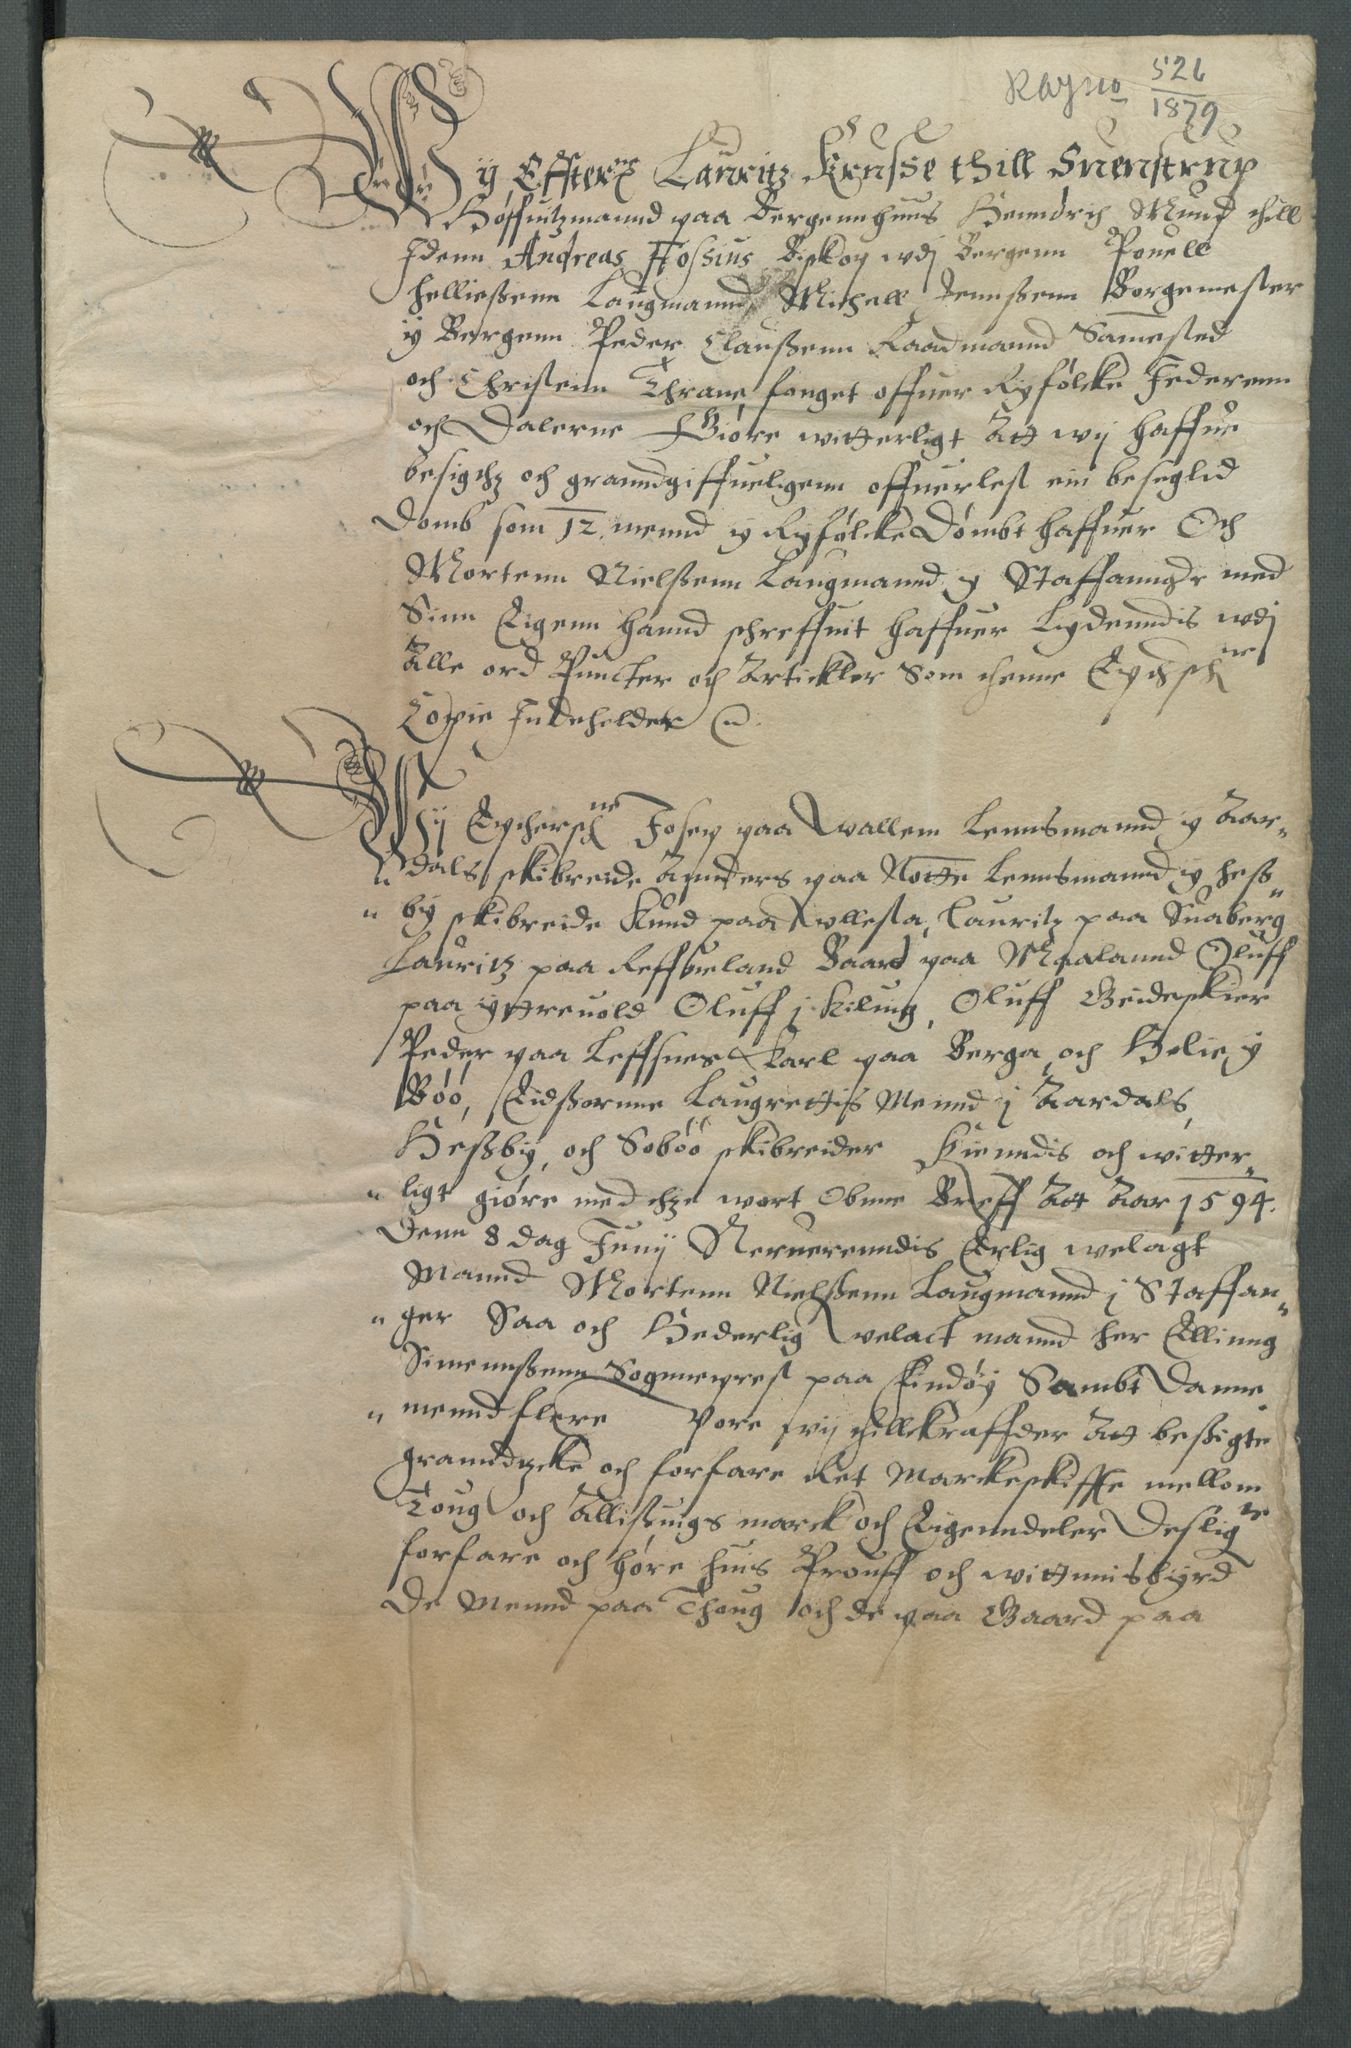 Rayno 526
1879
Wij Effterne Lauritz Krusse thill Suenstrup
Höffuitzmannd paa Bergennhuus Henndrich Munck thill
Idenn Andreas Fossius Biskop wdj Bergenn Pouell
Helliessenn Laugmannd Michell Jennssenn Borgemester
y Bergenn Peder Claussenn Raadmannd Samested
och Christenn Thrane fouget offuer Ryfölcke Jederenn
och Dalerne Giöre witterligt Att wij haffue
besigtz och granndgiffueligenn offuerlest ein beseglid
Domb som 12 mennd y Ryfölcke Dömbt haffuer Och
Mortenn Nielssenn Laugmannd y Staffannger med
Sinn Eigenn hannd schreffuit haffuer Lydenndis wdj
Alle ord Puncter och Artickler Som thenne
Copie Indeholder
Wij Josep paa Wallem Lennsmannd y Aar-
dals skibreide Annders paa Notte Lennsmannd y Hess-
by skibreide Knud paa Wllesta, Lauritz paa Suaberg
Lauritz paa Reffueland Baard paa Maalannd Oluff
paa yttreuold Oluff j Kiluig, Oluff Beideskier
Peder paa Leffsnes Karl paa Berga, och Helie y
Böö, Eidssornne Laugrettis Mennd j Aardals,
Hessby, och Soböö skibreider Kienndis och witter-
ligt giöre med thze wort Obnne Breff Att Aar 1594.
Denn 8 dag Junij Neruerenndis Erlig welagt
Mannd Mortenn Nielssenn Laugmannd j Staffan-
ger Saa och Hederlig welact mannd her Ellinng
Simennssenn Sognneprest paa Findöy Sambt Danne
mennd flere Vore wij thillkraffder Att bessigte
granndzcke och forfare Ret Markeskiffte mellom
Toug och Allissnigs marck och Eigenndeler Deslig
forfare och höre huis Prouff och wittnnisbyrd
De Mennd paa Thoug och de paa Gaard paa